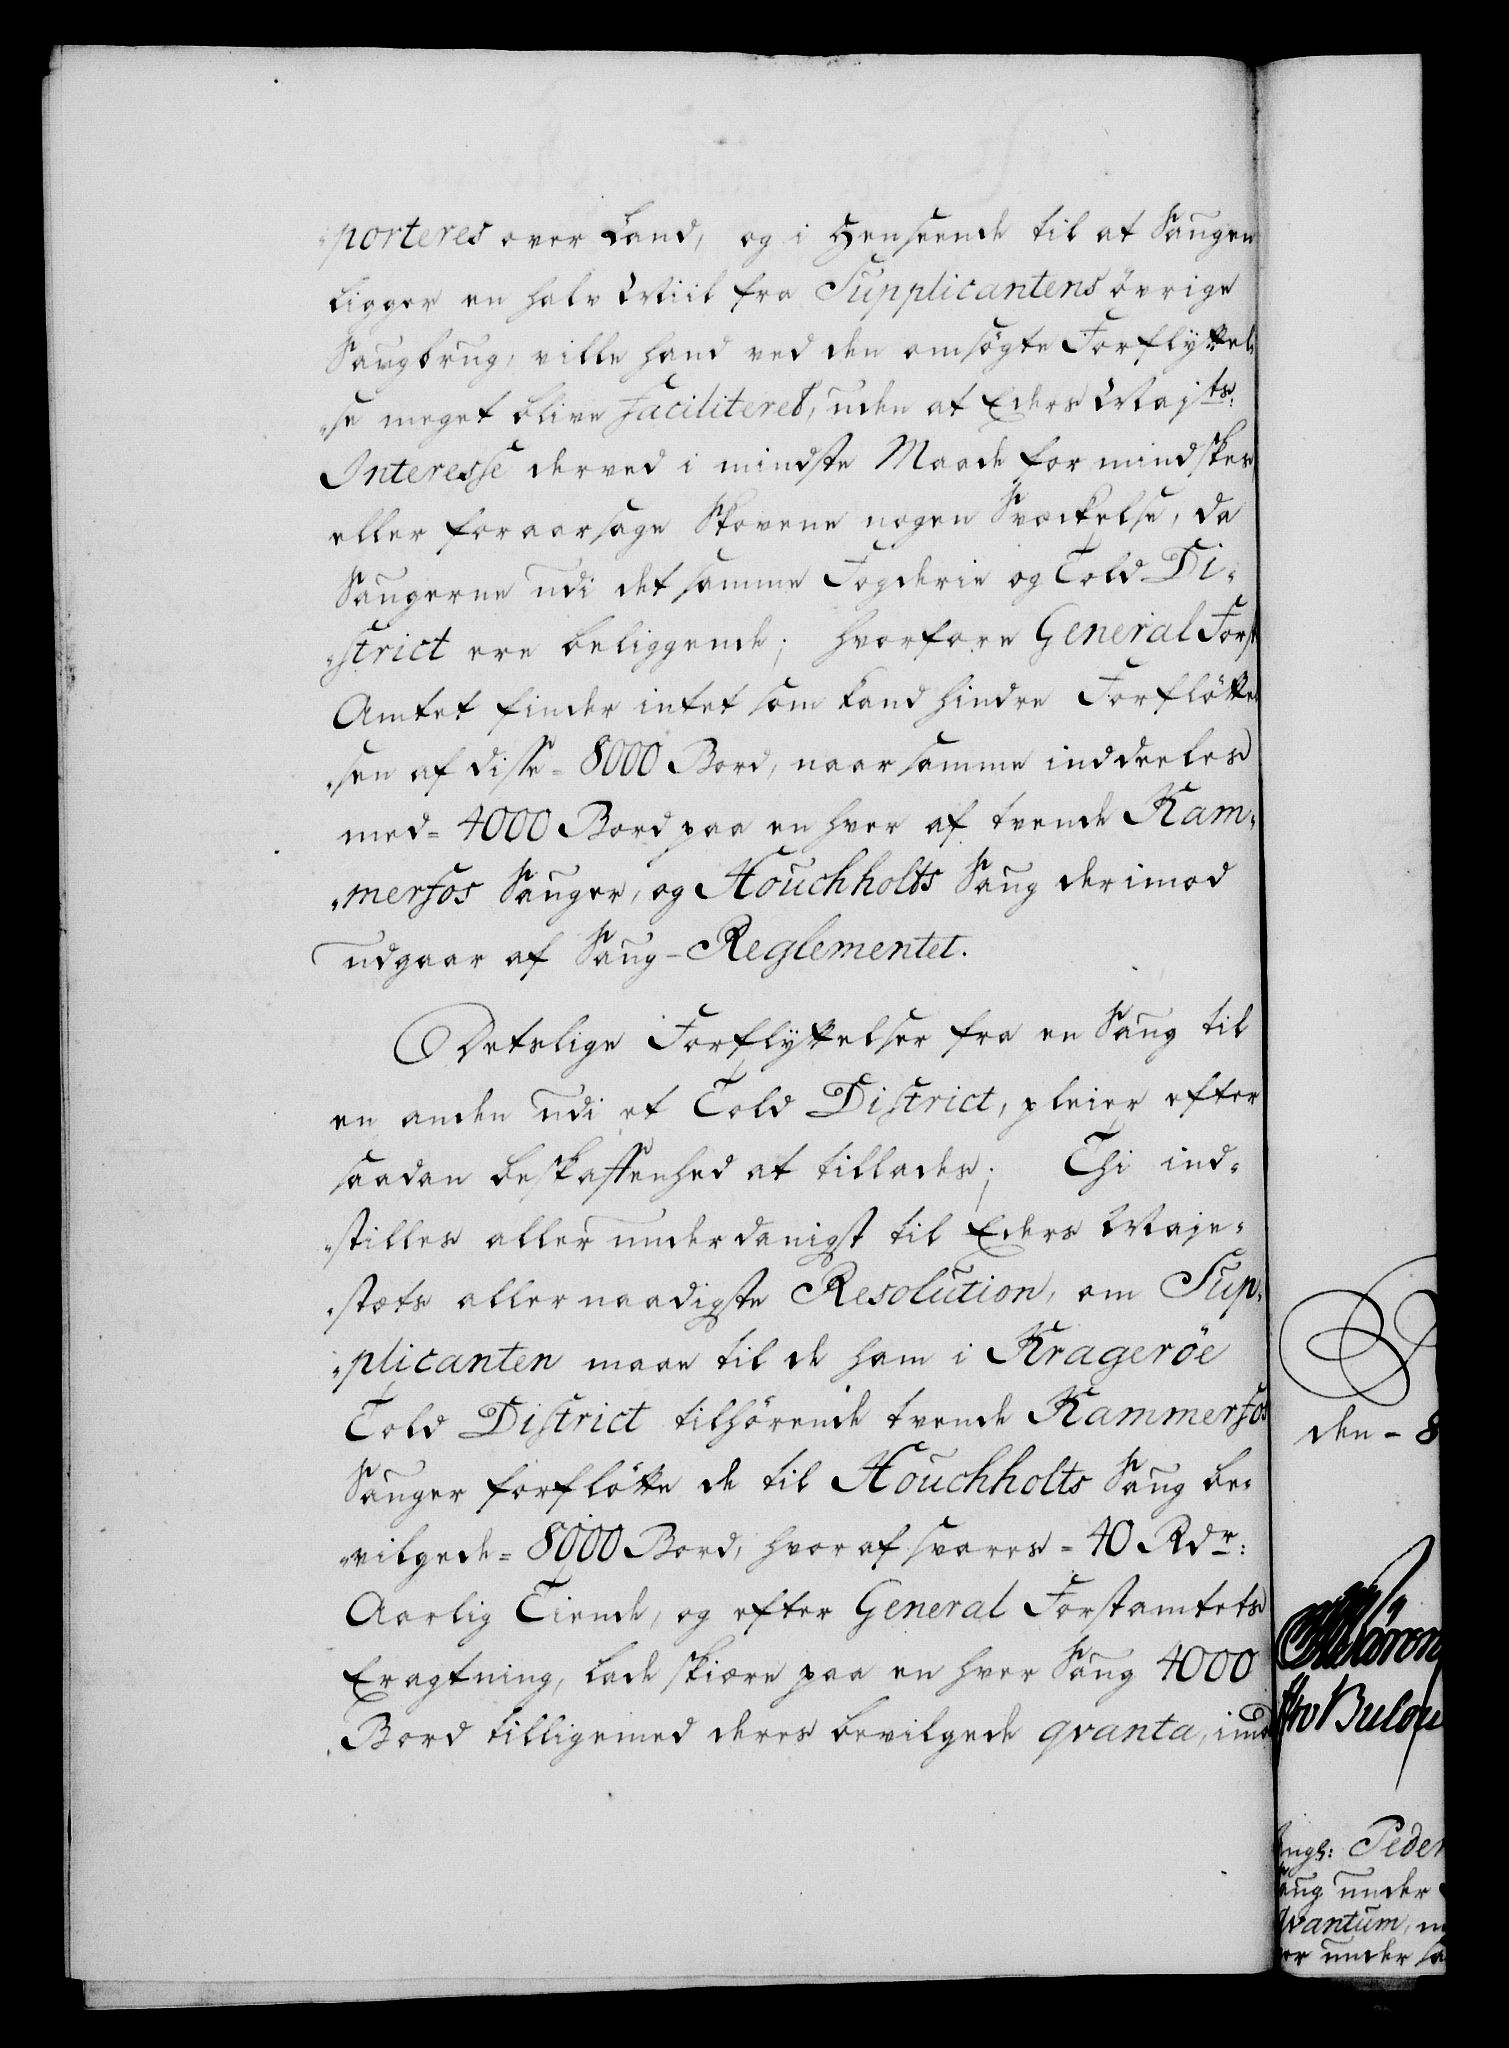 „porteres over Land, og i Henseende til at Saugen
ligger en halv Miil fra Supplicantens övrige
Saugbrug, ville hand ved den omsögte Forflÿttel„
„se meget blive faciliteret, uden at Eders Majts:
Interesse derved i mindste Maade formindskes
eller foraarsage Skovene nogen Svæckelse, da
Saugerne udi det samme Fogderie og Told Di„
„strict ere beliggende; hvorfore General Forst
Amtet finder intet som kand hindre Forflötte
„sen af disse = 8000 Bord, naar samme inddeeles
med = 4000 Bord paa en hver af tvende Kam„
„merfos Sauger, og Houchholts Saug derimod
udgaar af Saug-Reglementet.
Detslige Forflÿttelser fra en Saug til
en anden udi et Told District, pleier efter
saadan beskaffenhed at tillades; Thi ind„
„stilles allerunderdanigst til Eders Maje„
„stæts allernaadigste Resolution, om Sup„
„plicanten maae til de ham i Krageröe
Told District tilhörende tvende Kammerfos
Sauger forflötte de til Houchholts Saug be„
„vilgede = 8000 Bord, hvoraf svares = 40 Rdr:
Aarlig Tiende, og efter General Forstamtets
Eragtning, lade skiære paa en hver Saug 4000
Bord tilligemed deres bevilgede qvanta, imod
den - 8
Bulow
Peder
aug under
qvantum,
er under